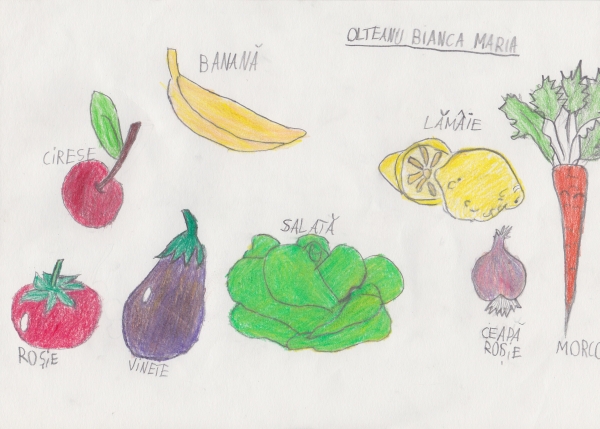 OLTEANU BIANCA MARIA
BANANĂ
LĂMÂIE
CIREȘE
SALATĂ
CEAPĂ
ROȘIE
ROȘIE
VINETE